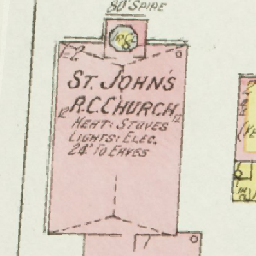 80' SPIRE
ST. JOHN'S
R.C. CHURCH
HEAT: STOVES
LIGHTS: ELEC.
24' TO EAVES
1